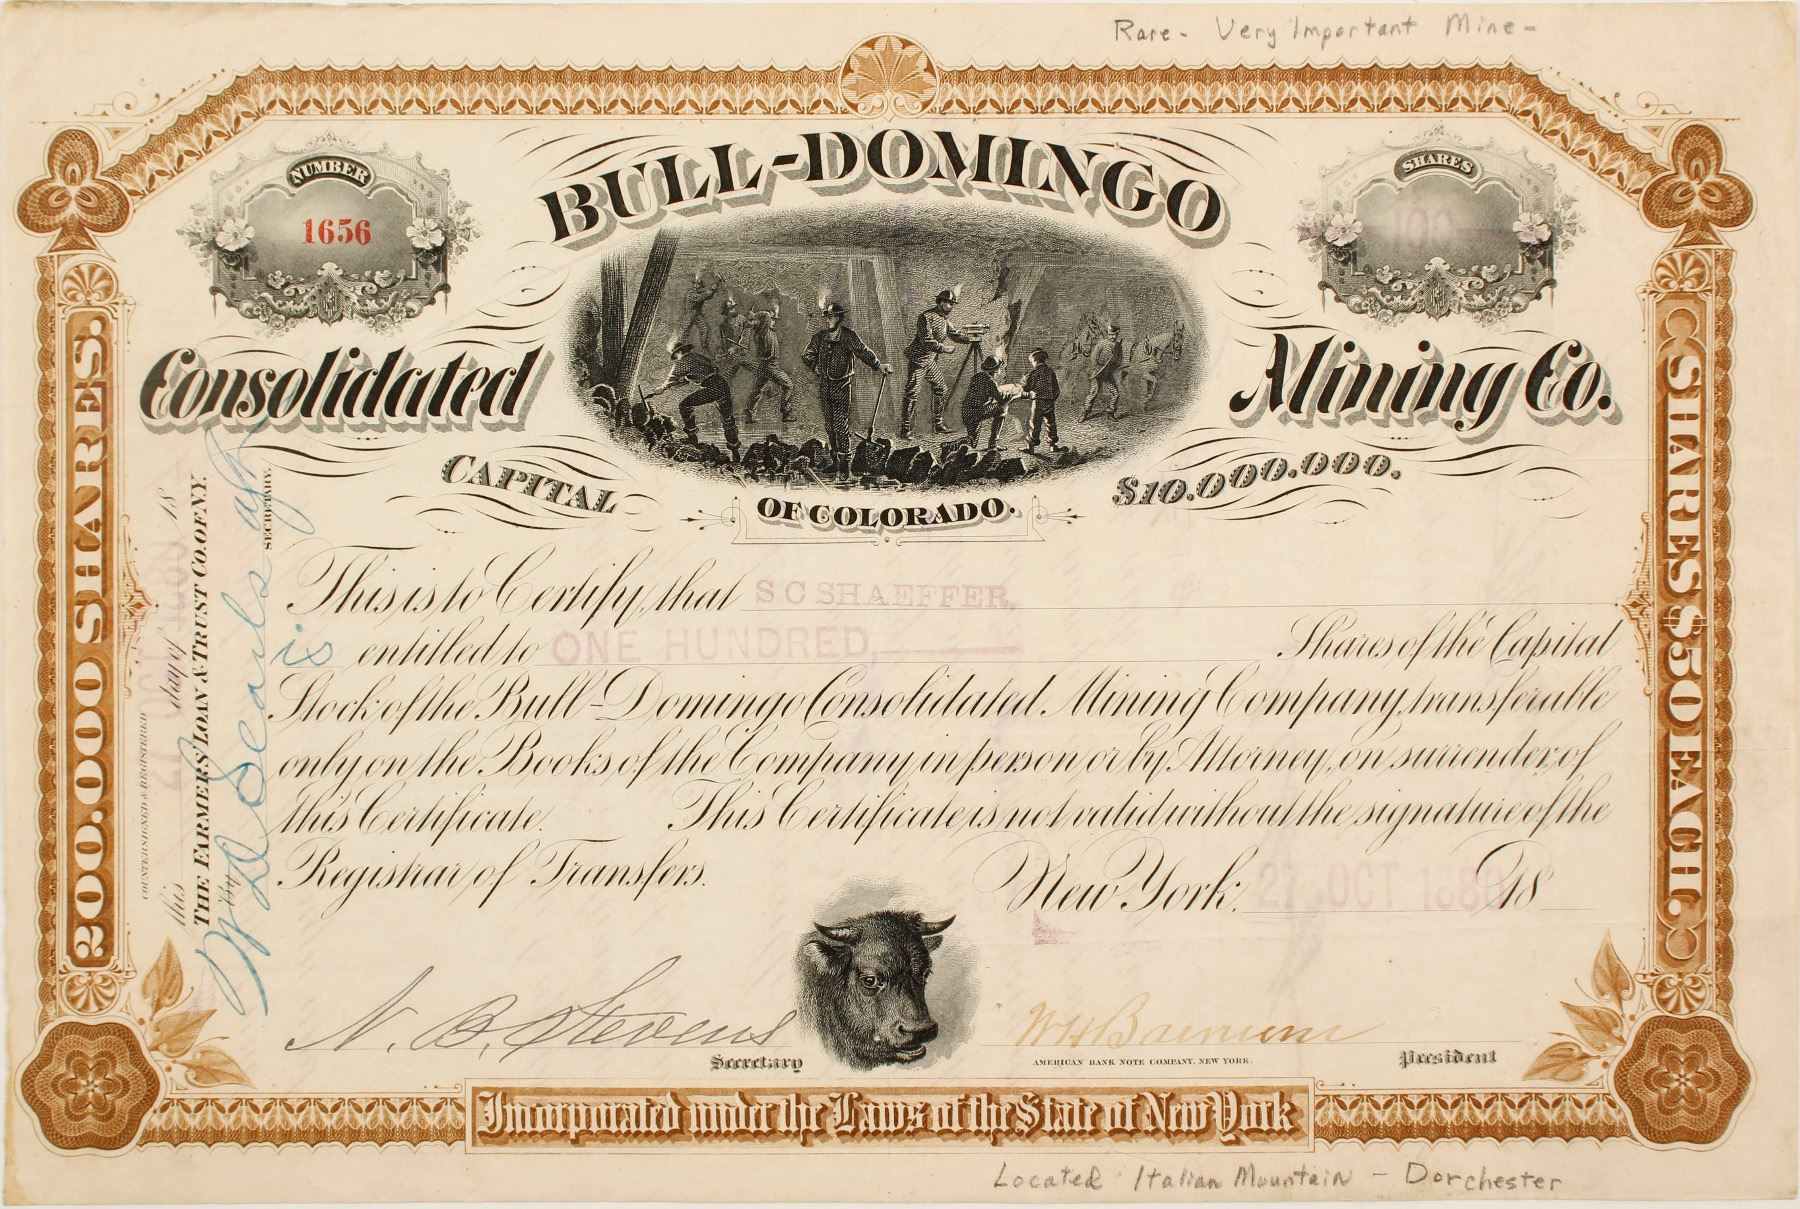 Rare - Very Important Mine -
NUMBER
1656
SHARES
100
BULL-DOMINGO
Consolidated Mining Co.
CAPITAL $10.000.000.
OF COLORADO.
200.000 SHARES.
SHARES $50 EACH.
COUNTERSIGNED & REGISTERED
this 27 OCT 1880 day of 18
THE FARMERS' LOAN & TRUST CO. OF N.Y.
by
SECRETARY.
This is to Certify, that S C SHAEFFER,
is entitled to ONE HUNDRED, Shares of the Capital
Stock of the Bull-Domingo Consolidated Mining Company, transferable
only on the Books of the Company, in person or by Attorney, on surrender of
this Certificate. This Certificate is not valid without the signature of the
Registrar of Transfers.
New York, 27 OCT 1880 18
N. B. Stevens
Secretary
W H Barnum
President
AMERICAN BANK NOTE COMPANY. NEW YORK.
Incorporated under the Laws of the State of New York
Located Italian Mountain - Dorchester